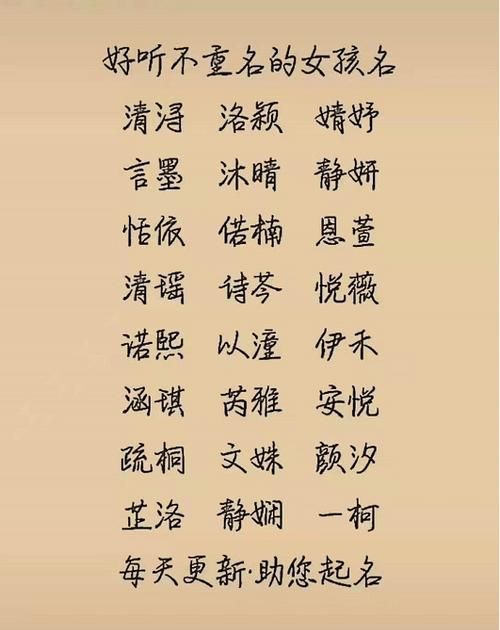 好听不重名的女孩名
清浔 洛颖 婧妤
言墨 沐晴 静妍
恬依 偌楠 恩萱
清瑶 诗芩 悦薇
诺熙 以潼 伊禾
涵琪 芮雅 安悦
疏桐 文姝 颜汐
芷洛 静娴 一柯
每天更新·助您起名